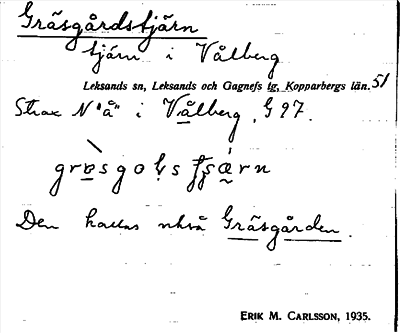 Gräsgårdstjärn
tjärn i Vålberg
Leksands sn, Leksands och Gagnefs tg, Kopparbergs län. 51
Strax N "å" i Vålberg, G 97.
Den kallas också Gräsgården.
ERIK M. CARLSSON, 1935.